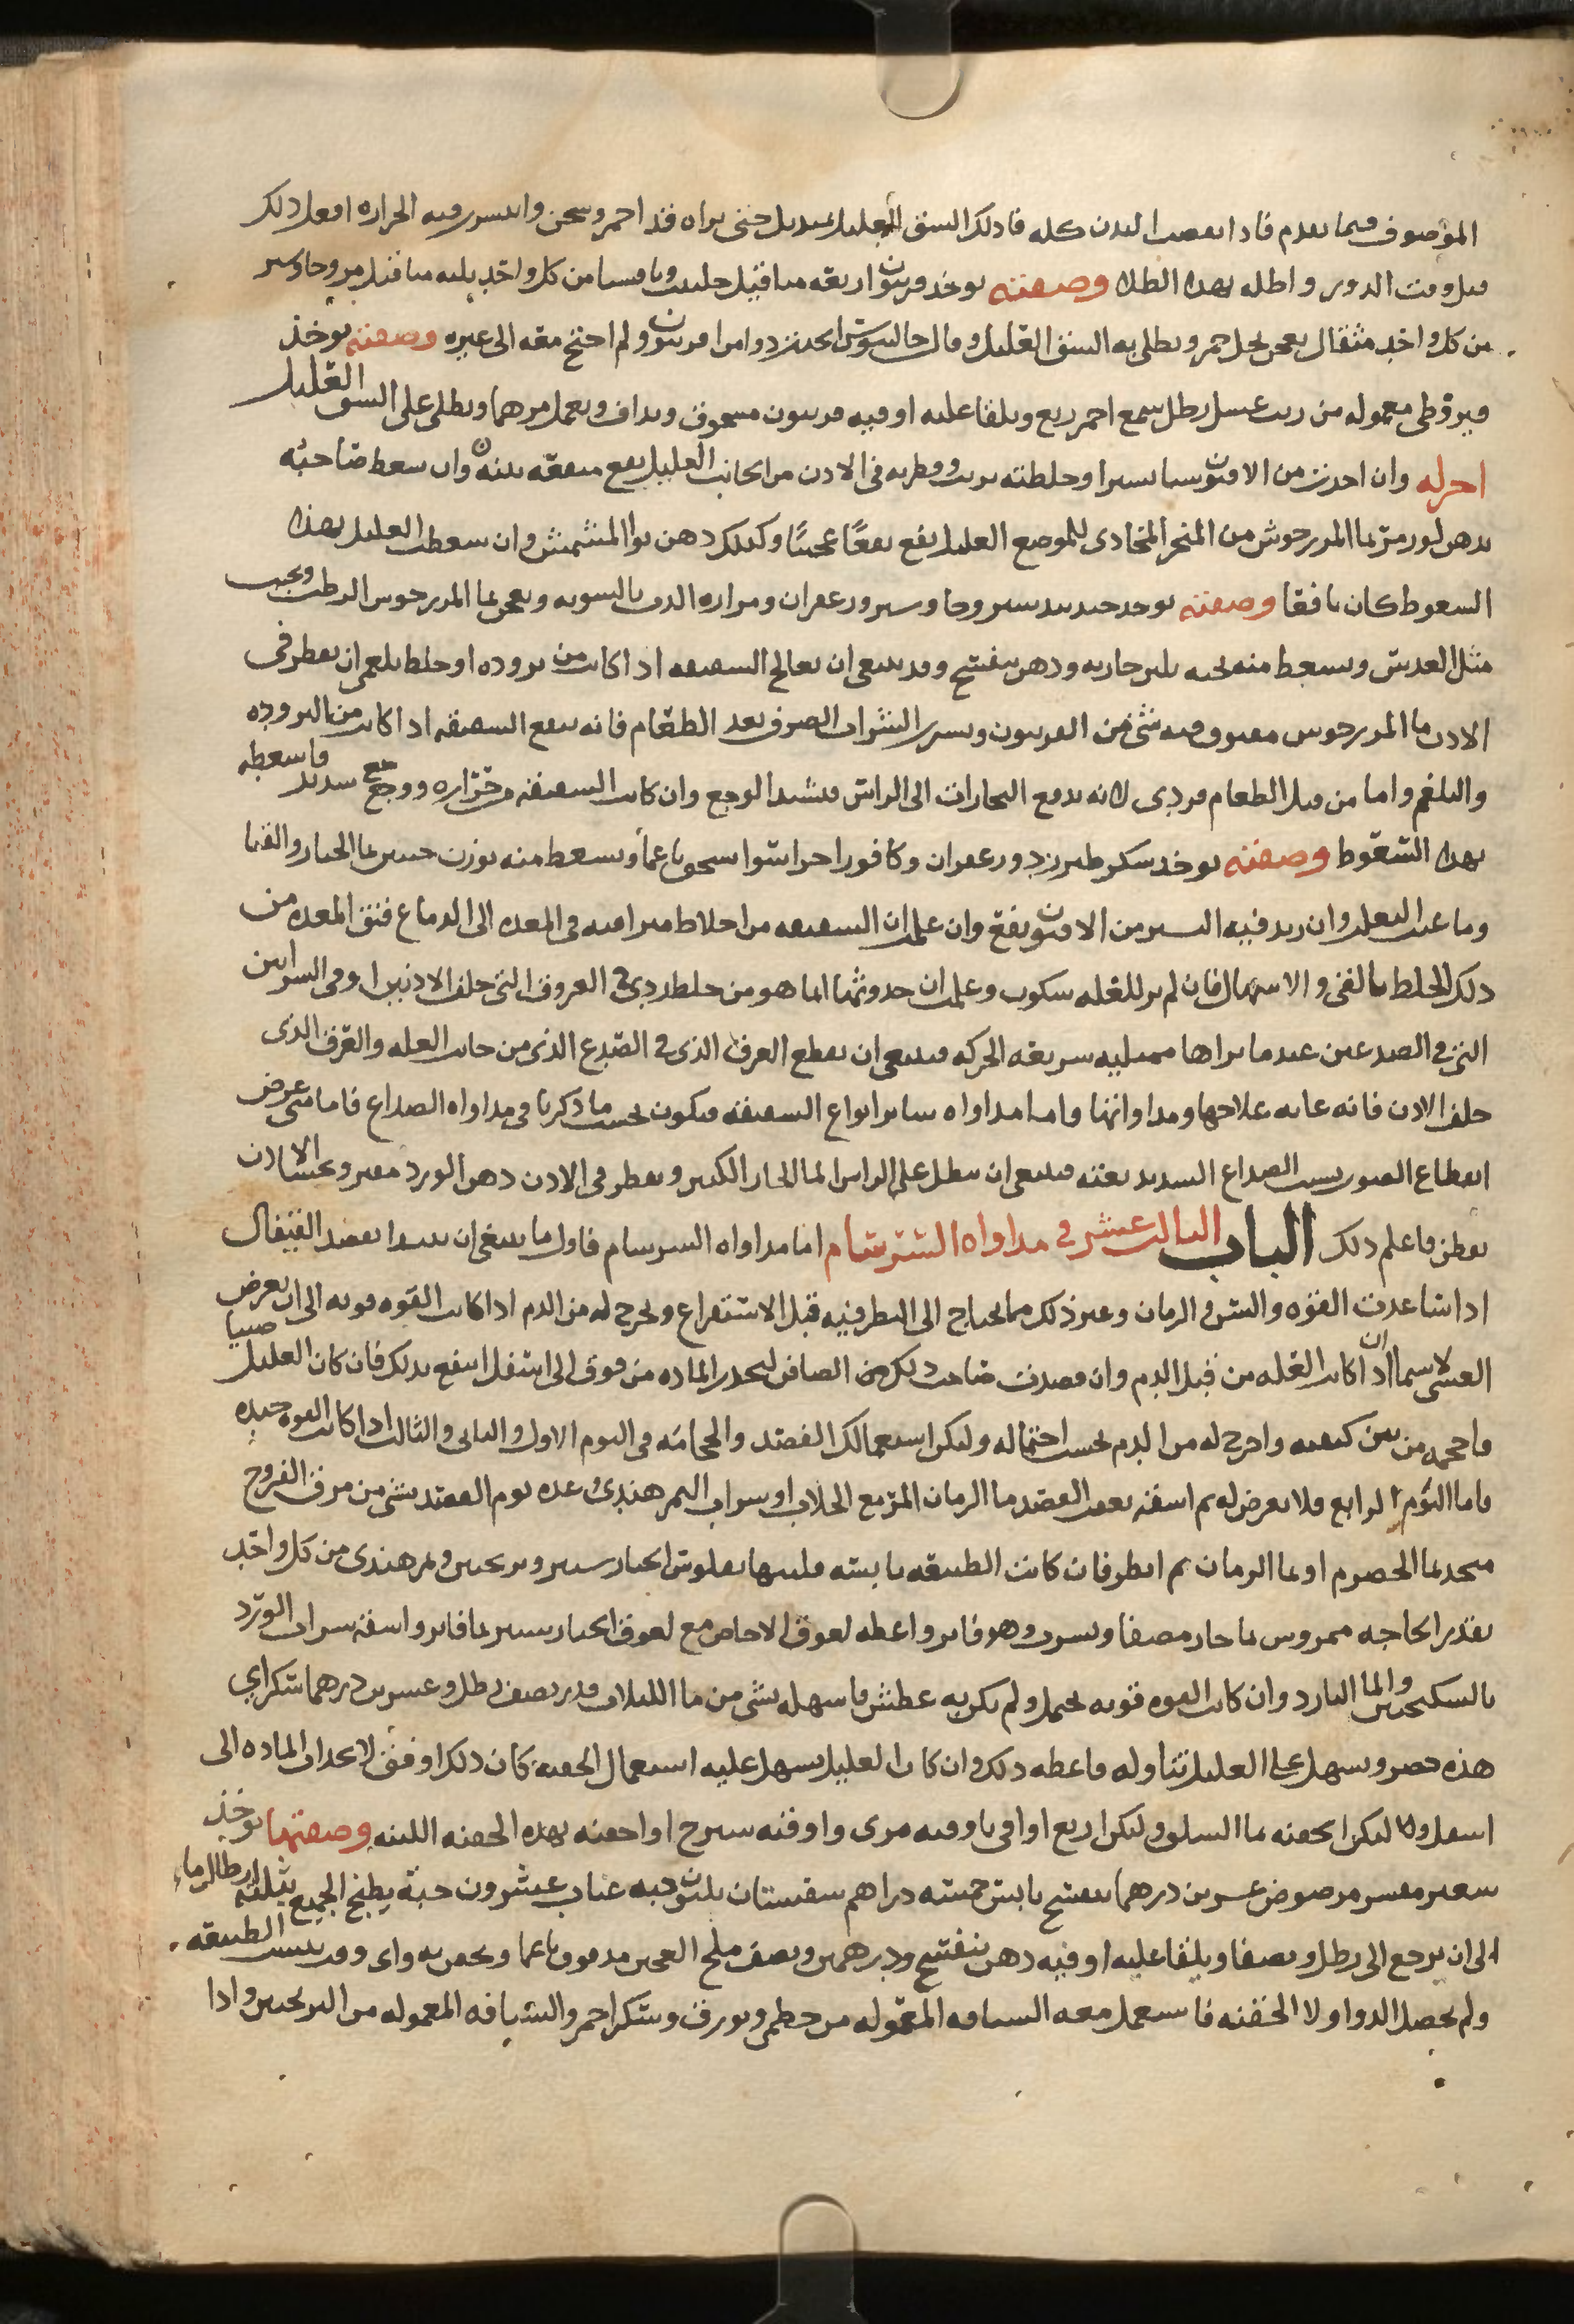 الموصوف فيما تقدم فاذا نقيت البدن كله فادلك الشق العليل بمنديل حتى تراه قد احمر وسخن وانتشرت فيه الحراره افعل ذلك
قبل وقت الدور واطله بهذا الطلاء وصفته يوخذ فربيون اربعه مثاقيل حلتيت وثافسيا من كل واحد ثلثه مثاقيل مر وجاوشير
من كل واحد مثقال يعجن بخل خمر ويطلى به الشق العليل وقال جالينوس اتخذت دوا من افربيون ولم احتج معه الى غيره وصفته يوخذ
قيروطى معموله من زيت عسل رطل شمع احمر ربع ويلقا عليه اوقيه فربيون مسحوق ويداف ويعمل مرهما ويطلى على الشق العليل
اخر له وان اخذت من الافربيون شيا يسيرا وخلطته بزيت وقطرته فى الاذن من الجانب العليل نفع منفعه بينه وان سعط صاحبه
بدهن لوز مر بما المرزجوش من المنخر المحاذى للموضع العليل نفع نفعًا عجيبًا وكذلك دهن نوا المشمش وان سعطت العليل بهذا
السعوط كان نافعا وصفته يوخذ جندبيدستر وجاوشير وزعفران ومراره الدب بالسويه ويعجن بما المرزجوش الرطب ويحبب
مثل العدس ويسعط منه بحبه بلبن جاريه ودهن بنفسج وقد ينبغى ان تعالج الشقيقه اذا كانت من بروده او خلط بلغمى ان يقطر فى
الاذن ما المرزجوش مفتوق فيه شى من الفربيون ويشرب الشراب الصرف بعد الطعام فانه ينفع الشقيقه اذا كانت من البروده
والبلغم واما من قبل الطعام فردى لانه يدفع البخارات الى الراس فيشتد الوجع وان كانت الشقيقه من حراره ووجع شديد فاسعطه
بهذا السعوط وصفته يوخذ سكر طبرزد وزعفران وكافور اجزا سوا يسحق ناعما ويسعط منه بوزن حبتين بما الخيار والقثا
وما عنب الثعلب وان زيد فيه اليسير من الافيون نفع وان علمت ان الشقيقه من اخلاط متراقيه فى المعده الى الدماغ فنق المعده من
ذلك الخلط بالقى والاسهال فان لم تر للعله سكون وعلمت ان حدوثها انما هو من خلط ردى فى العروق التى خلف الاذنين او فى الشرايين
التى فى الصدغين عندما تراها ممتليه سريعه الحركه فينبغى ان تقطع العرق الذى فى الصدغ الذى من جانب العله والعرق الذى
خلف الاذن فانه غايه علاجها ومداواتها واما مداواه ساير انواع الشقيقه فيكون بحسب ما ذكرنا فى مداواه الصداع فاما متى عرض
انقطاع الصوت بسبب الصداع الشديد بغته فينبغى ان ينطل على الراس الما الحار الكثير ويقطر فى الاذن دهن الورد مفتر وتحشا الاذن
بقطن فاعلم ذلك الباب الثالث عشر فى مداواه السرسام اما مداواه السرسام فاول ما ينبغى ان تبتدا بفصد القيفال
اذا ساعدت القوه والسن والزمان وغير ذلك مما يحتاج الى النظر فيه قبل الاستفراغ وتخرج له من الدم اذا كانت القوه قويه الى ان يعرض
الغشى لا سيما ان كانت العله من قبل الدم وان فصدت صاحب ذلك من الصافن لينحدر الماده من فوق الى اسفل انتفع بذلك فان كان العليل صبيا
فاحجمه من بين كتفيه واخرج له من الدم بحسب احتماله وليكن استعمالك الفصد والحجامه فى اليوم الاول والثانى والثالث اذا كانت القوه جيده
فاما اليوم الرابع فلا تعرض له ثم اسقه بعقب الفصد ما الرمان المز مع الجلاب او شراب التمر هندى وغده يوم الفصد بشى من مرق الفروج
متخذ بما الحصرم او بما الرمان ثم انظر فان كانت الطبيعه يابسه فلينها بفلوس الخيار شنبر وترنجبين وتمر هندى من كل واحد
بقدر الحاجه ممروس بما حار مصفا ويشرب وهو فاتر واعطه لعوق الاجاص مع لعوق الخيار شنبر بما فاتر واسقه شراب الورد
بالسكنجبين والما البارد وان كانت القوه قويه تحتمل ولم يكن به عطش فاسهله بشى من ما اللبلاب قدر نصف رطل وعشرين درهما سكر اى
هذه حضر ويسهل على العليل تناوله فاعطه ذلك وان كان العليل يسهل عليه استعمال الحقنه كان ذلك اوفق لانحدار الماده الى
اسفل ولا ليكن الحقنه بما السلق وليكن اربع اواقى باوقيه مرى واوقيه شيرج او احقنه بهذه الحقنه اللينه وصفتها يوخذ
شعير مقشر مرضوض عشرين درهما بنفسج يابس خمسه دراهم سفستان ثلثون حبه عناب عشرون حبة يطبخ الجميع بثلثه ارطال ما
الى ان يرجع الى رطل ويصفا ويلقا عليه اوقيه دهن بنفسج ودرهمين ونصف ملح العجين مدقوق ناعما ويحقن به واى وقت يبست الطبيعه
ولم يحضر الدوا ولا الحقنه فاستعمل معه الشيافه المعموله من خطمى وبورق وسكر احمر والشيافه المعموله من الترنجبين واذا